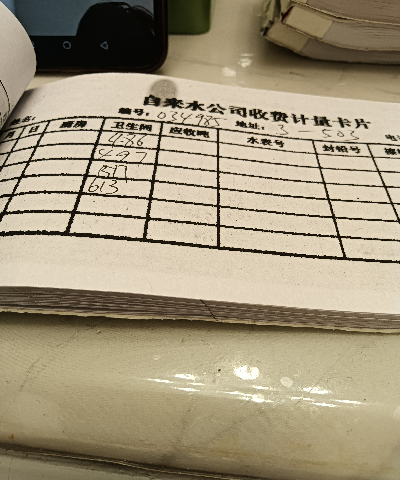 自来水公司收费计量卡片
编号：034985 地址：3-503
日 厨房 卫生间 应收吨 水表号 封铅号
486
497
613